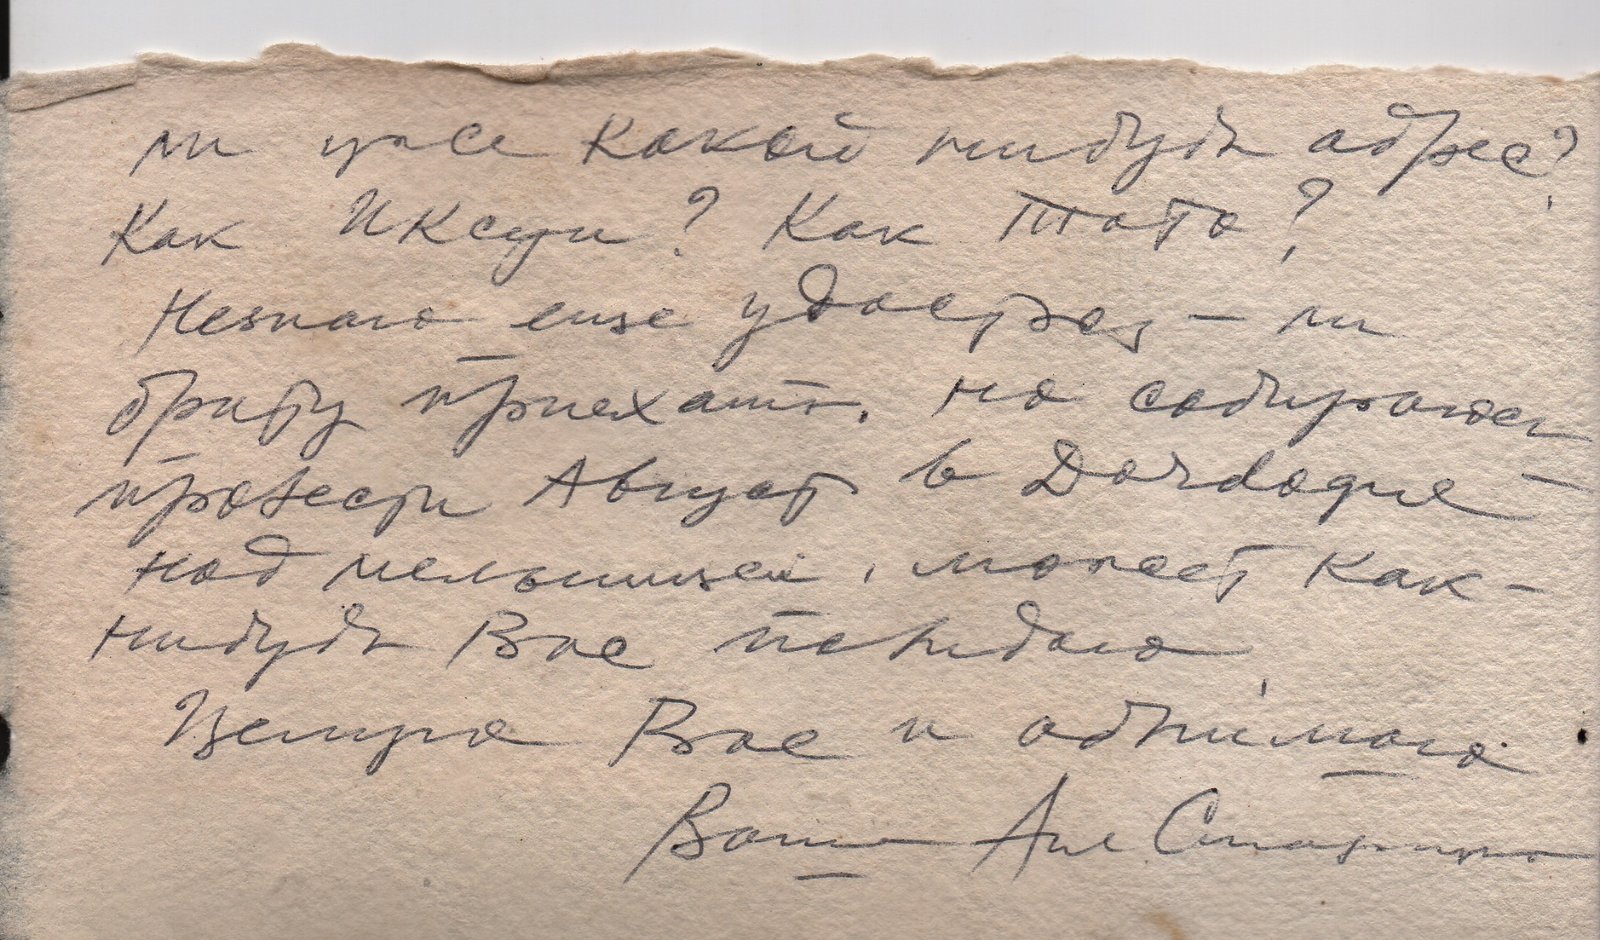 ли уже какой нибудь адрес?
Как Иксу? Как Тата?
Незнаю еще удастся - ли
брату приехать, но собираюсь
провести Август в Dordogne -
над мельницей, может как-
нибудь Вас повидаю,
Целую Вас и обнимаю
Ваш